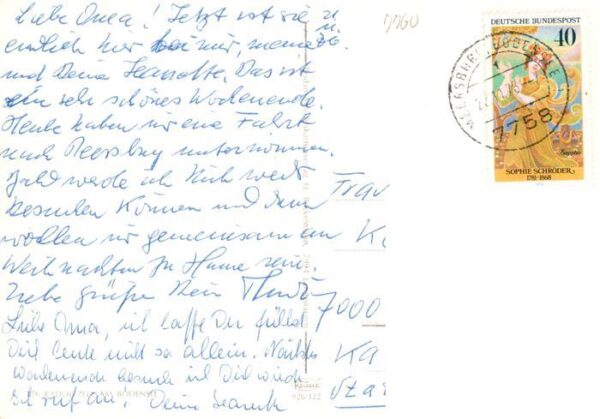 Liebe Oma! Jetzt ist sie
endlich hier bei mir, meine
und Deine Jeanette. Das ist
ein sehr schönes Wochenende.
Heute haben wir eine Fahrt
nach Meersburg unternommen.
Bald werde ich Dich wieder
besuchen können und dann
wollen wir gemeinsam an
Weihnachten zu Hause sein.
Liebe Grüße Dein
Liebe Oma, ich hoffe Du fühlst
Dich heute nicht so allein. Nächstes
Wochenende besuche ich Dich wieder
Deine Jeanette
7000
Ka
DEUTSCHE BUNDESPOST
40
Sappho
SOPHIE SCHRÖDER
1781-1868
MEERSBURG, BODENSEE
7758
BODENSEE
926/322